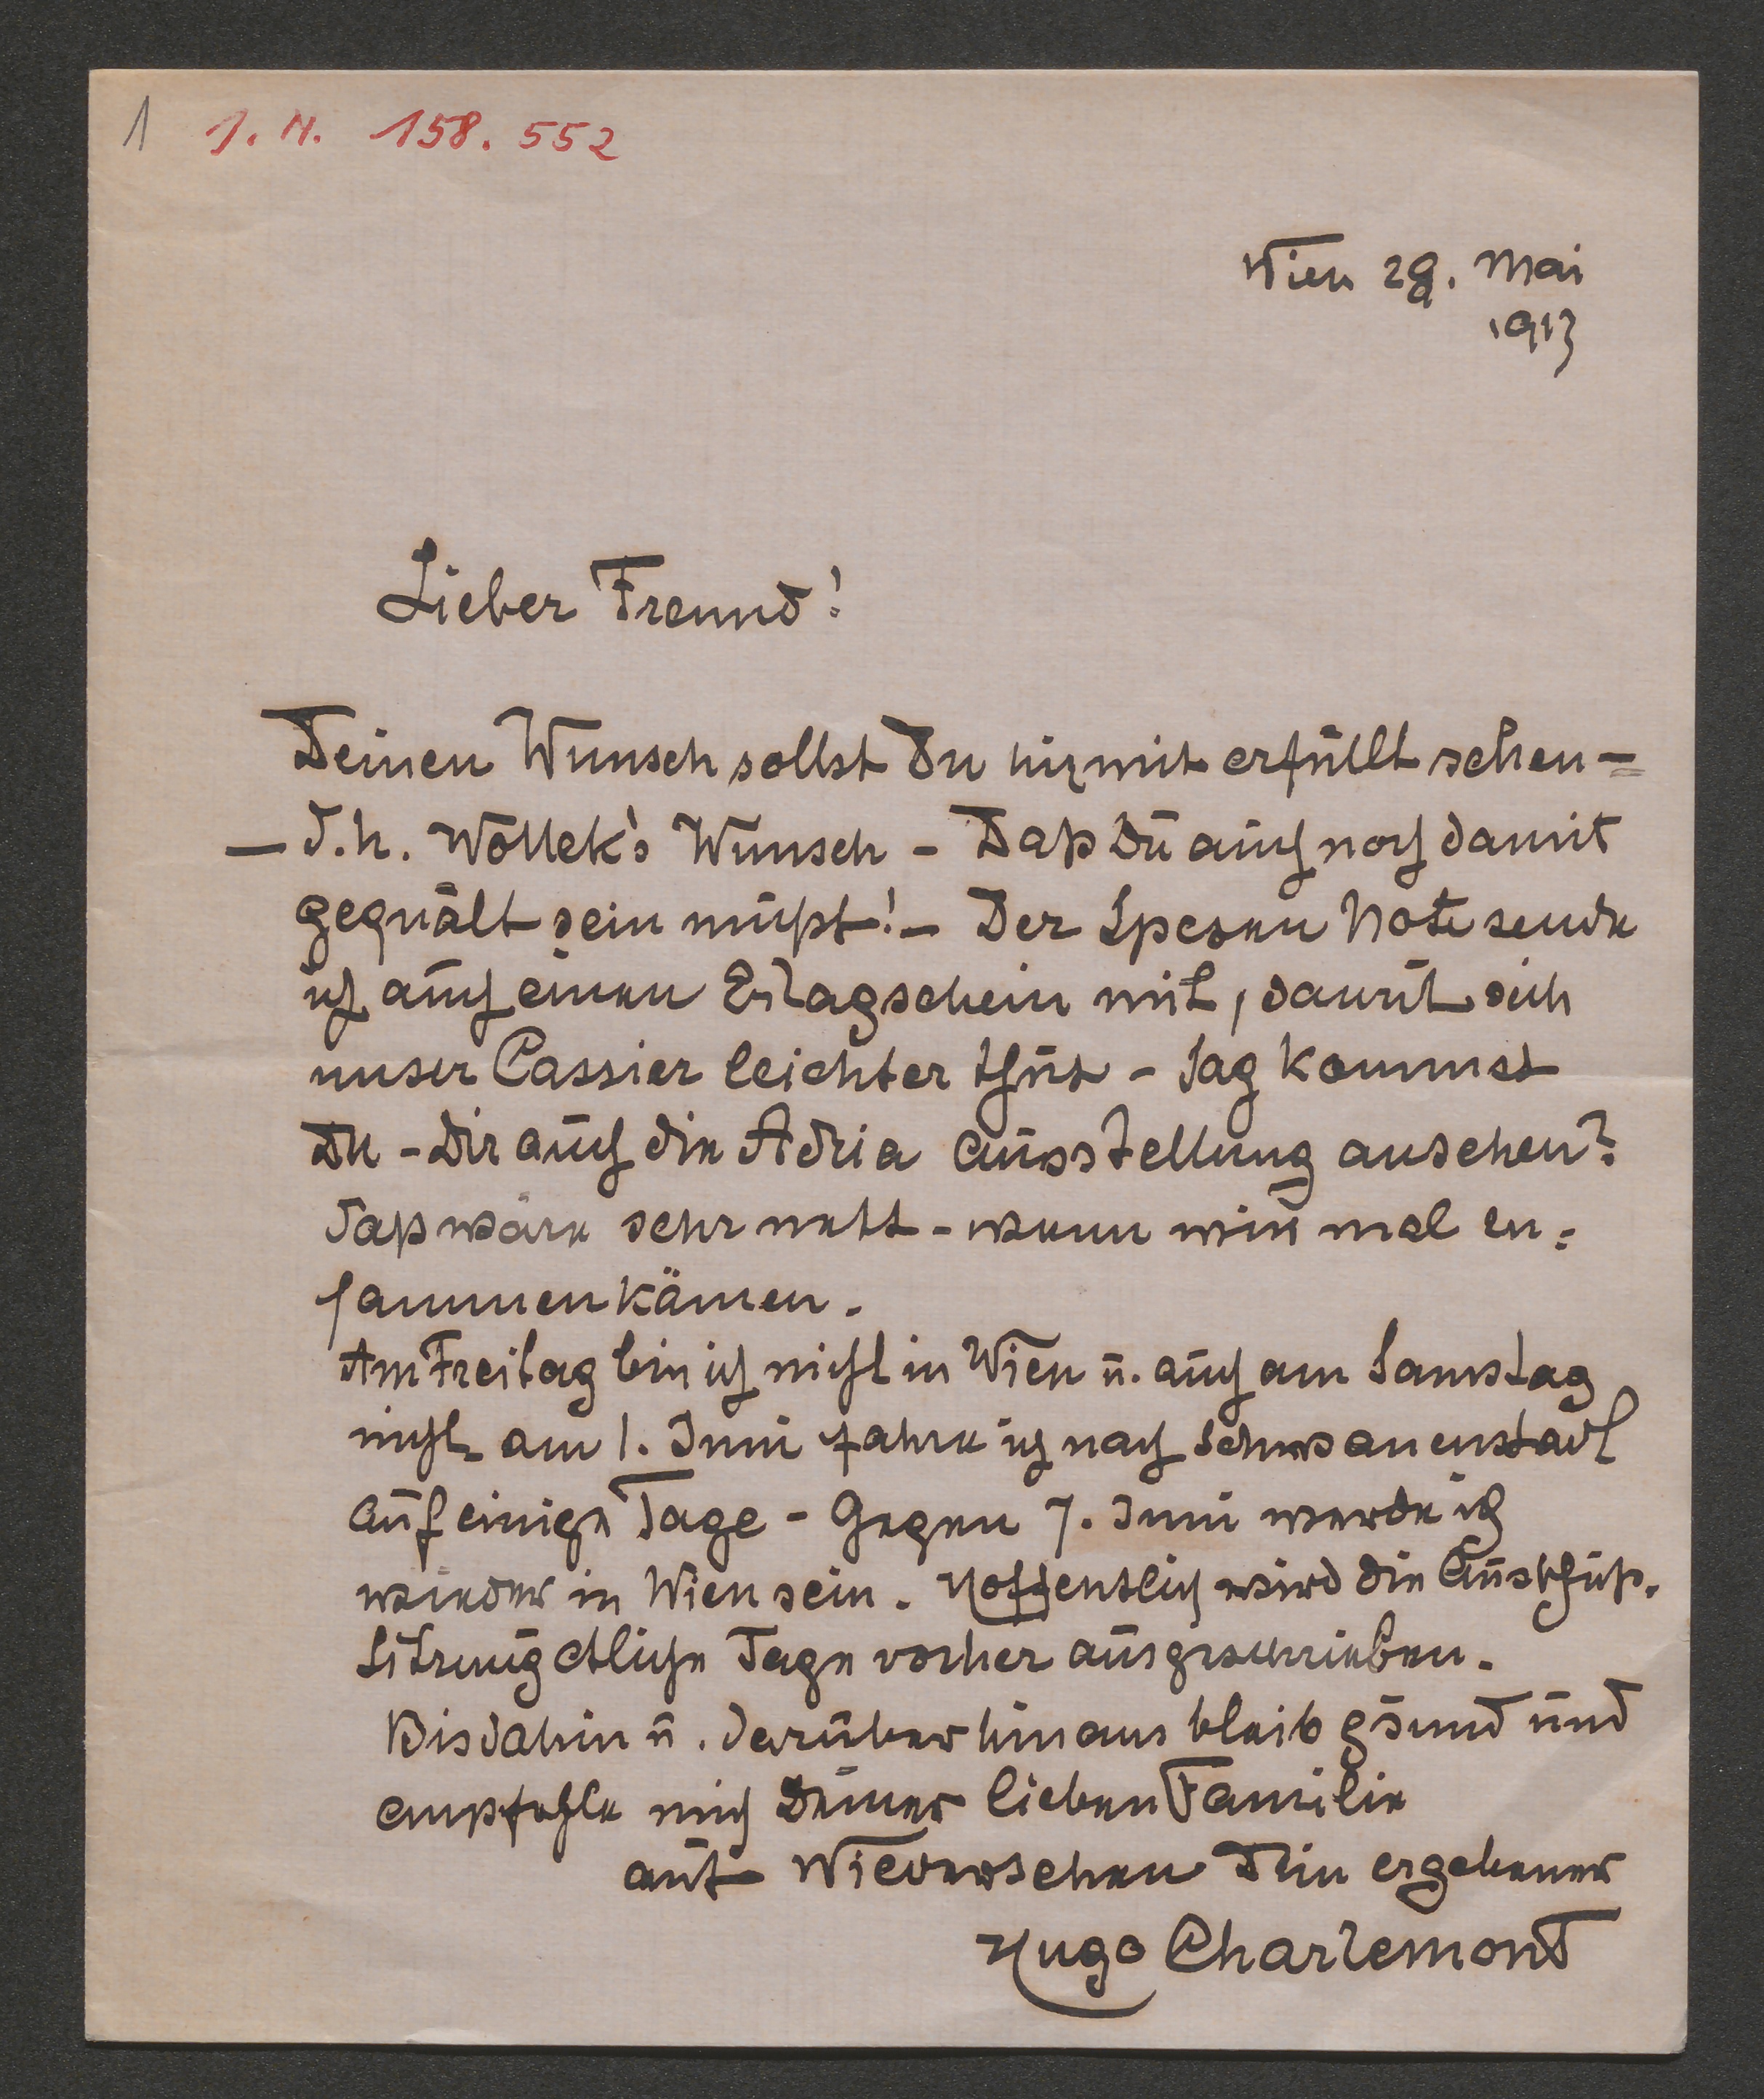 1 I. N. 158.552
Wien 29. Mai
1913
Lieber Freund!
Deinen Wunsch sollst Du hiemit erfüllt sehen –
– d. h. Wollek's Wunsch – Daß Du auch noch damit
gequält sein mußt! – Der Spesen Note sende
ich auch einen Erlagschein mit, damit sich
unser Cassier leichter thut – Sag kommst
Du – Dir auch die Adria Ausstellung ansehen?
Daß wäre sehr nett – wenn wir mal zu=
sammenkämen.
Am Freitag bin ich nicht in Wien u. auch am Samstag
nicht am 1. Juni fahre ich nach Schwanenstadt
auf einige Tage – Gegen 7. Juni werde ich
wieder in Wien sein. Hoffentlich wird die Ausschuß.
Sitzung etliche Tage vorher ausgeschrieben.
Bis dahin u. darüber hinaus bleib gsund und
empfehle mich Deiner lieben Familie
auf Wiedersehen Dein ergebener
Hugo Charlemont